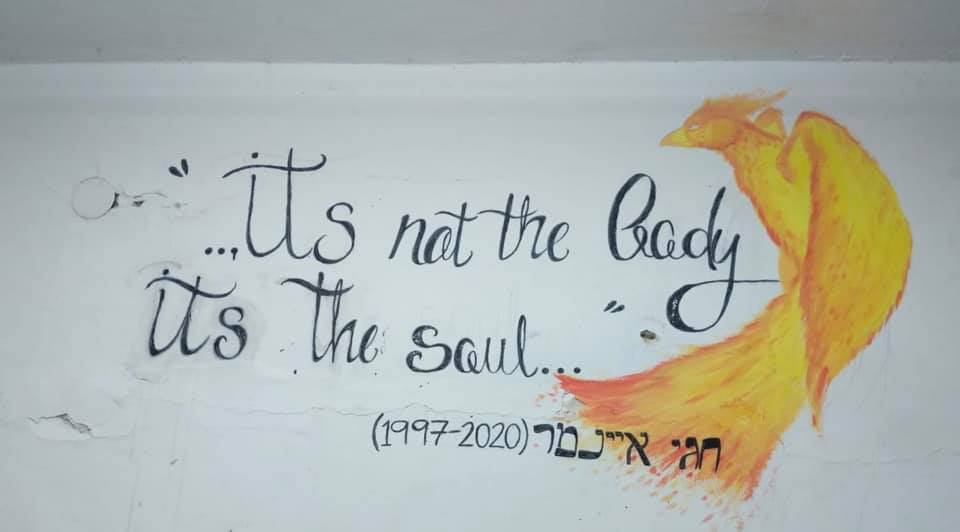 "...its not the body
its the soul..."
חגי איינמר (1997-2020)